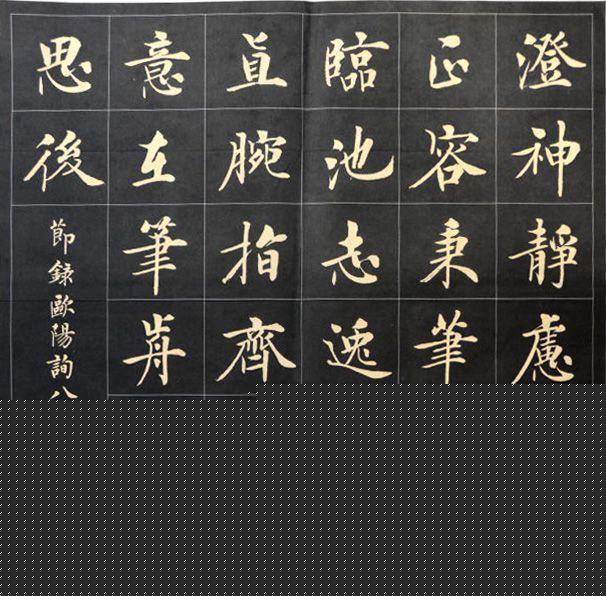 澄神靜慮
正容秉筆
臨池志逸
直腕指齊
意在筆歬
思後
節録歐陽詢八